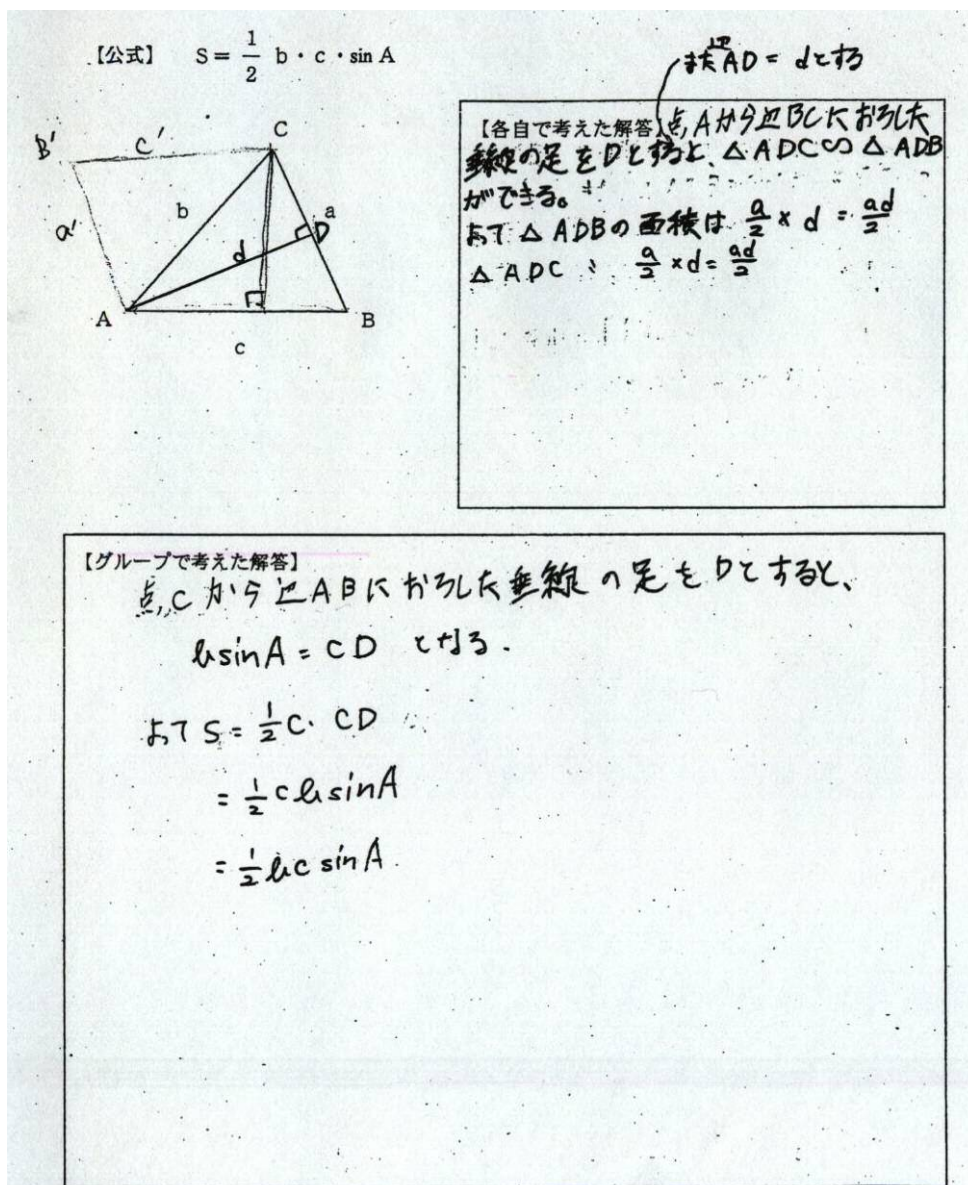 【公式】 S = 1/2 b・c・sin A
また辺AD = dとする
B'
c'
C
b
a
a'
D
d
A
B
c
【各自で考えた解答】点Aから辺BCにおろした
垂線の足をDとすると、△ADC∽△ADB
ができる。
よって△ADBの面積は a/2 × d = ad/2
△ADC 〃 a/2 × d = ad/2
【グループで考えた解答】
点Cから辺ABにおろした垂線の足をDとすると、
bsinA = CD となる.
よって S = 1/2 c・CD
= 1/2 cbsinA
= 1/2 bc sinA